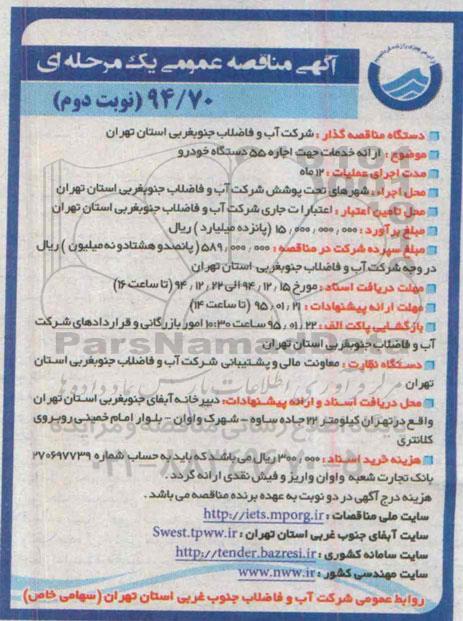 آگهی مناقصه عمومی یک مرحله ای
۹۴/۷۰ (نوبت دوم)
دستگاه مناقصه گذار : شرکت آب و فاضلاب جنوبغربی استان تهران
موضوع : ارائه خدمات جهت اجاره ۵۵ دستگاه خودرو
مدت اجرای عملیات : ۱۲ ماه
محل اجراء : شهرهای تحت پوشش شرکت آب و فاضلاب جنوبغربی استان تهران
محل تامین اعتبار : اعتبارات جاری شرکت آب و فاضلاب جنوبغربی استان تهران
مبلغ برآورد : ۱۵,۰۰۰,۰۰۰,۰۰۰ (پانزده میلیارد) ریال
مبلغ سپرده شرکت در مناقصه : ۵۸۹,۰۰۰,۰۰۰ (پانصدو هشتادو نه میلیون) ریال
در وجه شرکت آب و فاضلاب جنوبغربی استان تهران
مهلت دریافت اسناد : مورخ ۹۴,۱۲,۱۵ الی ۹۴,۱۲,۲۲ (تا ساعت ۱۶)
مهلت ارائه پیشنهادات : ۹۵,۰۱,۲۱ (تا ساعت ۱۴)
بازگشایی پاکت الف : ۹۵,۰۱,۲۲ ساعت ۱۰:۳۰ امور بازرگانی و قراردادهای شرکت
آب و فاضلاب جنوبغربی استان تهران
دستگاه نظارت : معاونت مالی و پشتیبانی شرکت آب و فاضلاب جنوبغربی استان
تهران
محل دریافت اسناد و ارائه پیشنهادات: دبیرخانه آبفای جنوبغربی استان تهران
واقع در تهران کیلومتر ۲۲ جاده ساوه - شهرک واوان - بلوار امام خمینی روبروی
کلانتری
هزینه خرید اسناد : ۳۰۰,۰۰۰ ریال می باشد که باید به حساب شماره ۲۷۰۶۹۷۷۳۹
بانک تجارت شعبه واوان واریز و فیش نقدی ارائه گردد .
هزینه درج آگهی در دو نوبت به عهده برنده مناقصه می باشد .
سایت ملی مناقصات : http://iets.mporg.ir
سایت آبفای جنوب غربی استان تهران : Swest.tpww.ir
سایت سامانه کشوری : http://tender.bazresi.ir
سایت مهندسی کشور : www.nww.ir
روابط عمومی شرکت آب و فاضلاب جنوب غربی استان تهران (سهامی خاص)